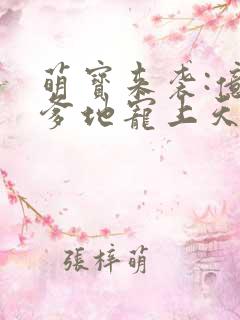 萌寶来袭:
爹地寵上天
張梓萌